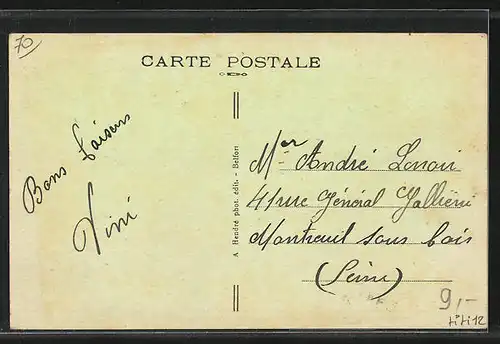 70
CARTE POSTALE
Bons baisers
Nini
A Hendré phot. édit. - Belfort
Mr André Lenoir
41 rue Général Galliéni
Montreuil sous bois
(Seine)
9,-